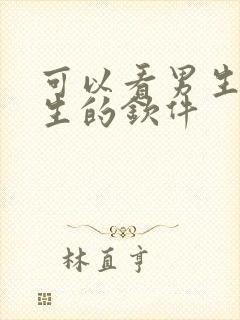 可以看男生
生的欽件
林直亨